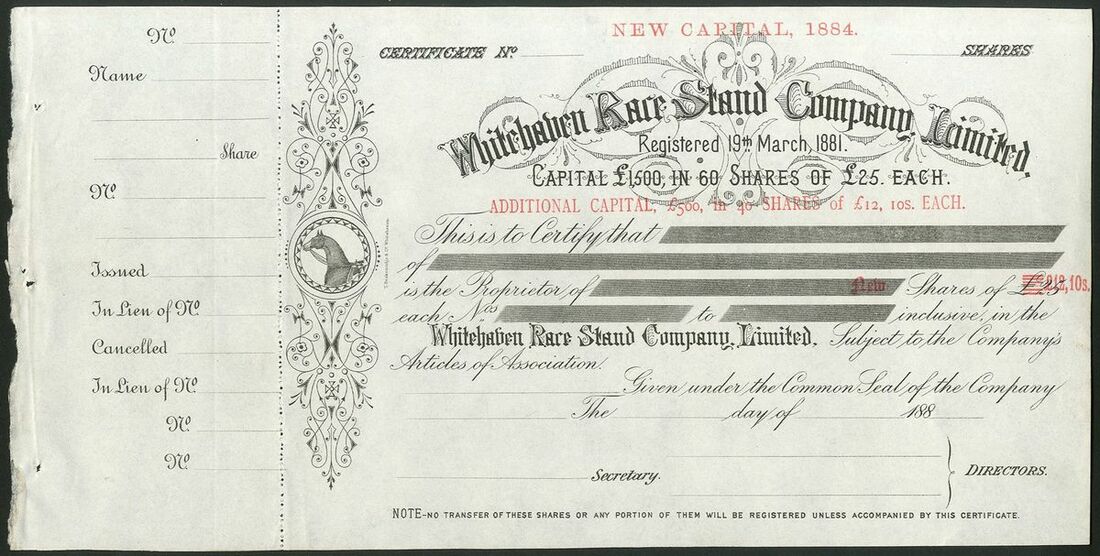 Nº
Name
Share
Nº
Issued
In Lieu of Nº
Cancelled
In Lieu of Nº
Nº
Nº
NEW CAPITAL, 1884.
CERTIFICATE Nº SHARES
Whitehaven Race Stand Company, Limited.
Registered 19th March, 1881.
CAPITAL £1500, IN 60 SHARES OF £25. EACH.
ADDITIONAL CAPITAL, £500, in 40 SHARES of £12, 10s. EACH.
This is to Certify that
of
is the Proprietor of New Shares of £25 £12,10s.
each Nos to inclusive, in the
Whitehaven Race Stand Company, Limited. Subject to the Company's
Articles of Association.
Given under the Common Seal of the Company
The day of 188
Secretary. DIRECTORS.
NOTE-NO TRANSFER OF THESE SHARES OR ANY PORTION OF THEM WILL BE REGISTERED UNLESS ACCOMPANIED BY THIS CERTIFICATE.